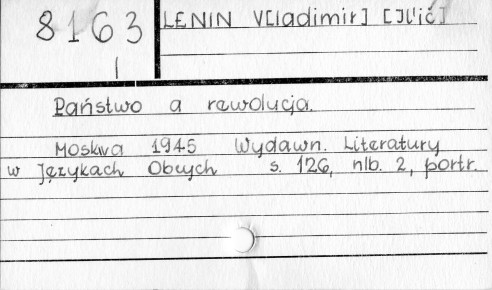 8163
I
LENIN V[ladimir] [Il'ič]
Państwo a rewolucja.
Moskwa 1945 Wydawn. Literatury
w Językach Obcych s. 126, nlb. 2, portr.